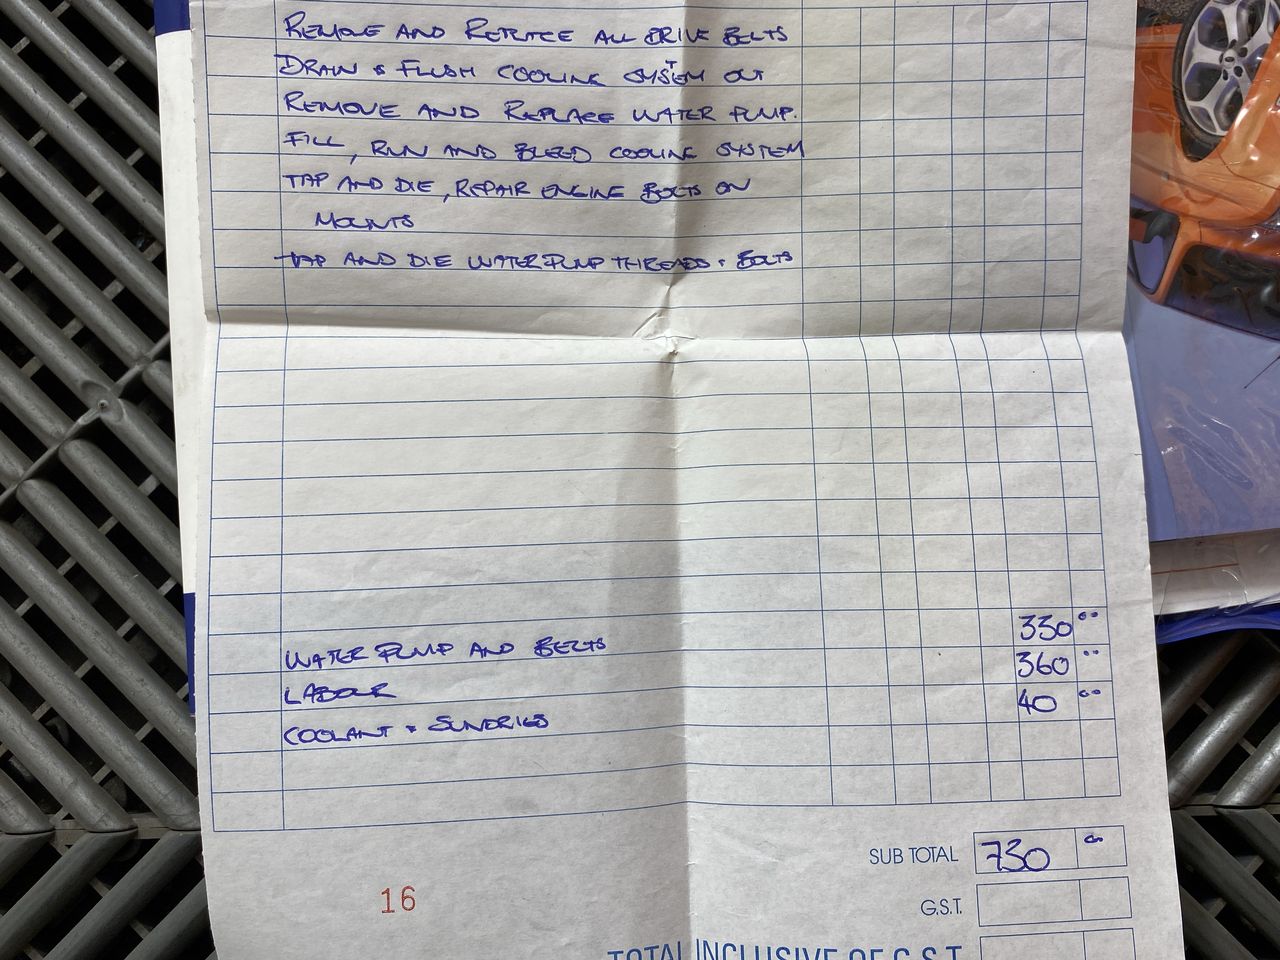 REMOVE AND REPLACE ALL DRIVE BELTS
DRAIN & FLUSH COOLING SYSTEM OUT
REMOVE AND REPLACE WATER PUMP.
FILL, RUN AND BLEED COOLING SYSTEM
TAP AND DIE, REPAIR ENGINE BOLTS ON
MOUNTS
TAP AND DIE WATER PUMP THREADS & BOLTS
WATER PUMP AND BELTS 330 00
LABOUR 360 00
COOLANT & SUNDRIES 40 00
SUB TOTAL 730 00
16
G.S.T.
TOTAL INCLUSIVE OF G.S.T.